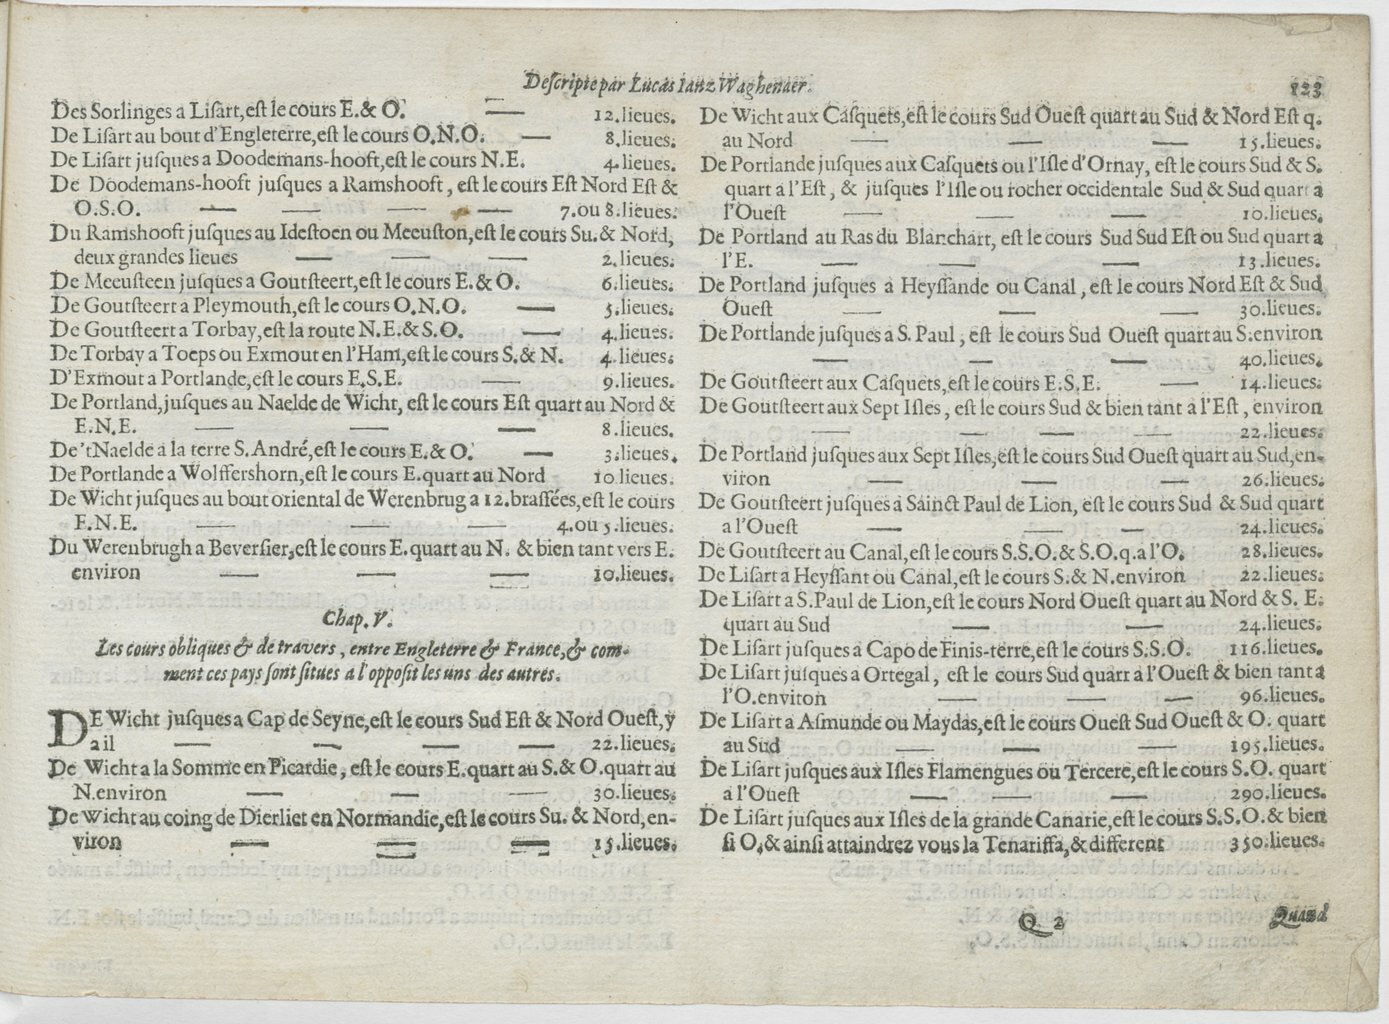 Descripte par Lucas Ianz Waghenaer.
123
Des Sorlinges a Lisart, est le cours E. & O. — 12. lieues.
De Lisart au bout d'Engleterre, est le cours O. N. O. — 8. lieues.
De Lisart jusques a Doodemans-hooft, est le cours N. E. 4. lieues.
De Doodemans-hooft jusques a Ramshooft, est le cours Est Nord Est &
O. S. O. — — — — 7. ou 8. lieues.
Du Ramshooft jusques au Idestoen ou Meeuston, est le cours Su. & Nord,
deux grandes lieues — — — 2. lieues.
De Meeusteen jusques a Goutsteert, est le cours E. & O. 6. lieues.
De Goutsteert a Pleymouth, est le cours O. N. O. — 5. lieues.
De Goutsteert a Torbay, est la route N. E. & S. O. — 4. lieues.
De Torbay a Toeps ou Exmout en l'Ham, est le cours S. & N. 4. lieues.
D'Exmout a Portlande, est le cours E. S. E. — 9. lieues.
De Portland, jusques au Naelde de Wicht, est le cours Est quart au Nord &
E. N. E. — — — 8. lieues.
De 't Naelde a la terre S. André, est le cours E. & O. — 3. lieues.
De Portlande a Wolffershorn, est le cours E. quart au Nord 10. lieues.
De Wicht jusques au bout oriental de Werenbrug a 12. brassées, est le cours
E. N. E. — — — 4. ou 5. lieues.
Du Werenbrugh a Beversier, est le cours E. quart au N. & bien tant vers E.
environ — — — 10. lieues.
Chap. V.
Les cours obliques & de travers, entre Engleterre & France, & com-
ment ces pays sont situes a l'opposit les uns des autres.
DE Wicht jusques a Cap de Seyne, est le cours Sud Est & Nord Ouest, y
a il — — — — 22. lieues.
De Wicht a la Somme en Picardie, est le cours E. quart au S. & O. quart au
N. environ — — — 30. lieues.
De Wicht au coing de Dierliet en Normandie, est le cours Su. & Nord, en-
viron — — — 15. lieues.
De Wicht aux Casquets, est le cours Sud Ouest quart au Sud & Nord Est q.
au Nord — — — 15. lieues.
De Portlande jusques aux Casquets ou l'Isle d'Ornay, est le cours Sud & S.
quart a l'Est, & jusques l'Isle ou rocher occidentale Sud & Sud quart a
l'Ouest — — — 10. lieues.
De Portland au Ras du Blanchart, est le cours Sud Sud Est ou Sud quart a
l'E. — — — 13. lieues.
De Portland jusques a Heyssande ou Canal, est le cours Nord Est & Sud
Ouest — — — 30. lieues.
De Portlande jusques a S. Paul, est le cours Sud Ouest quart au S: environ
— — — 40. lieues.
De Goutsteert aux Casquets, est le cours E. S. E. — 14. lieues.
De Goutsteert aux Sept Isles, est le cours Sud & bien tant a l'Est, environ
— — — — 22. lieues.
De Portland jusques aux Sept Isles, est le cours Sud Ouest quart au Sud, en-
viron — — — 26. lieues.
De Goutsteert jusques a Sainct Paul de Lion, est le cours Sud & Sud quart
a l'Ouest — — — 24. lieues.
De Goutsteert au Canal, est le cours S. S. O. & S. O. q. a l'O. 28. lieues.
De Lisart a Heyssant ou Canal, est le cours S. & N. environ 22. lieues.
De Lisart a S. Paul de Lion, est le cours Nord Ouest quart au Nord & S. E.
quart au Sud — — 24. lieues.
De Lisart jusques a Capo de Finis-terre, est le cours S. S. O. 116. lieues.
De Lisart jusques a Ortegal, est le cours Sud quart a l'Ouest & bien tant a
l'O. environ — — — 96. lieues.
De Lisart a Asmunde ou Maydas, est le cours Ouest Sud Ouest & O. quart
au Sud — — — 195. lieues.
De Lisart jusques aux Isles Flamengues ou Tercere, est le cours S. O. quart
a l'Ouest — — — 290. lieues.
De Lisart jusques aux Isles de la grande Canarie, est le cours S. S. O. & bien
si O, & ainsi attaindrez vous la Tenariffa, & different 350. lieues.
Q 2
Quand